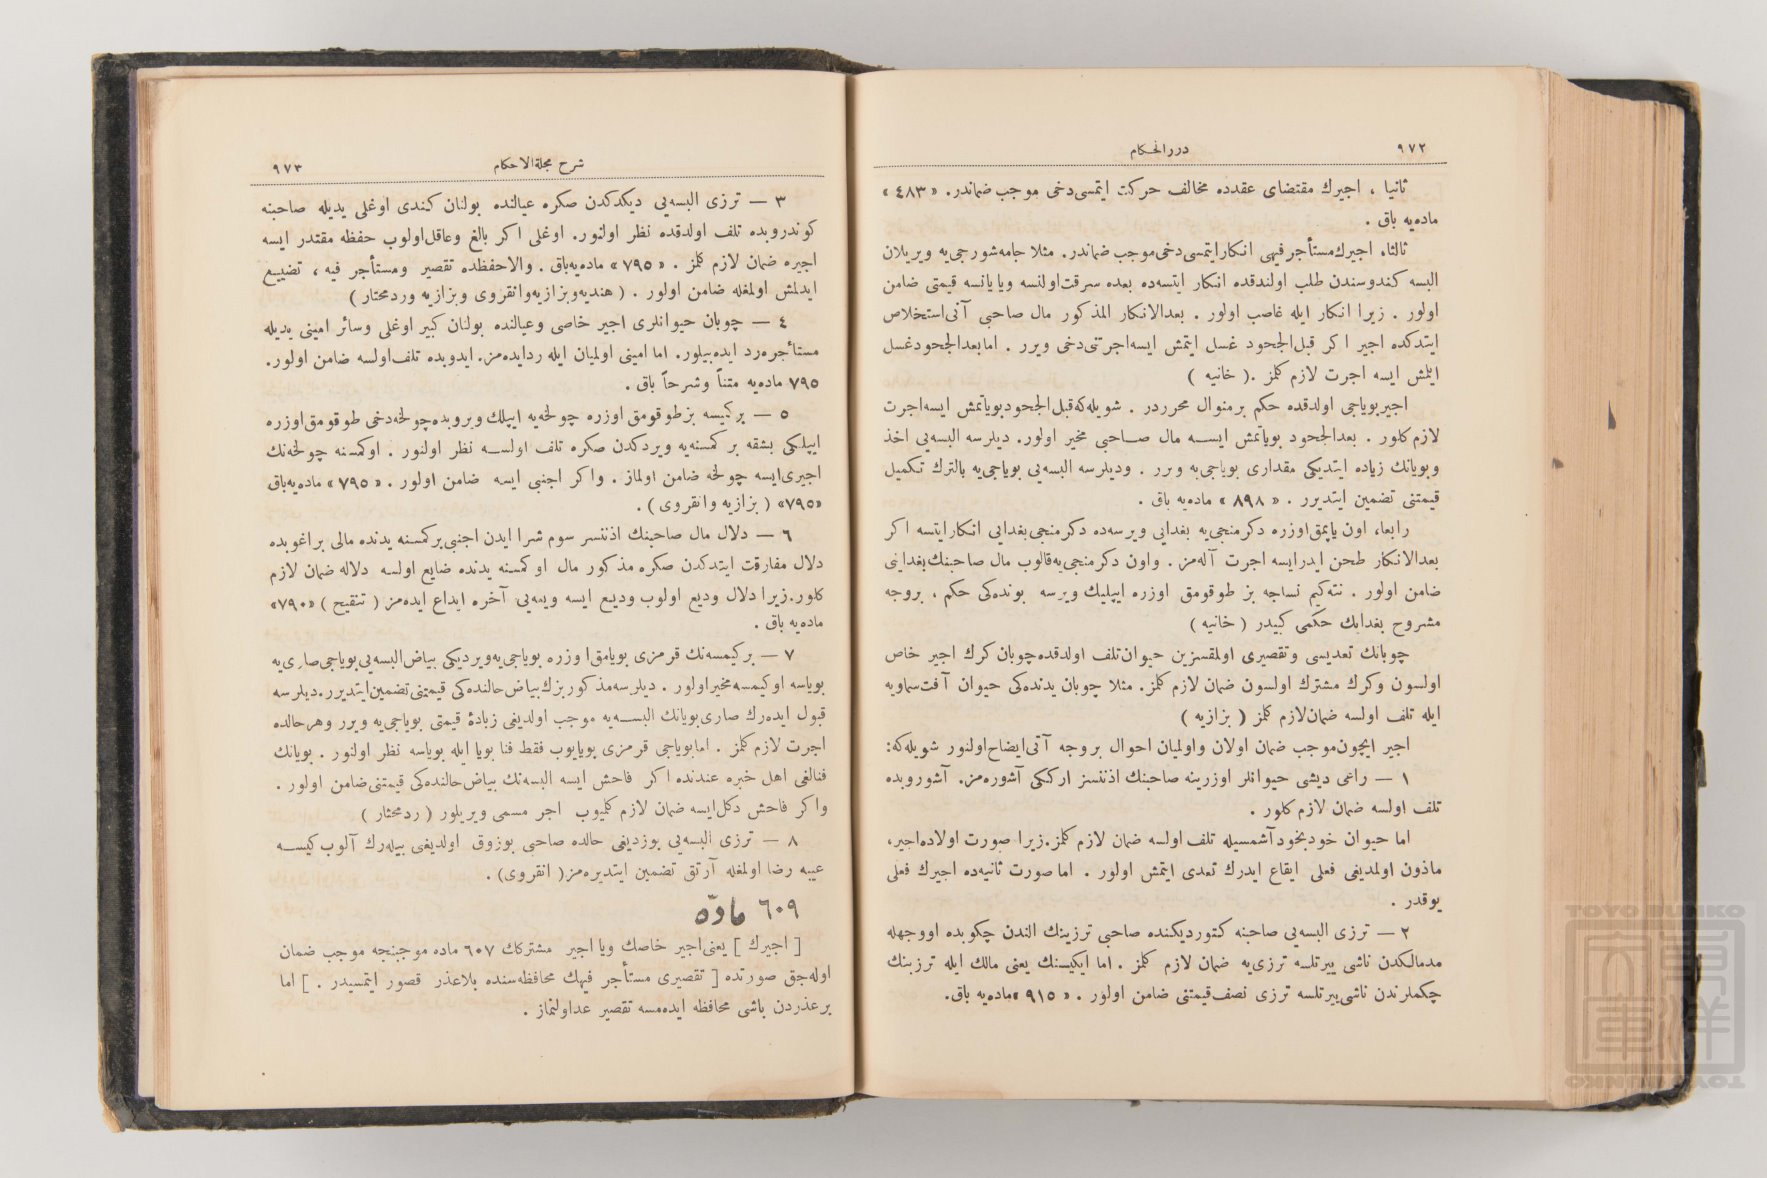 ٩٧٢
دررالحكام
ثانيا ، اجيرك مقتضاى عقده مخالف حركت ايتمسى دخى موجب ضماندر. «٤٨٣»
ماده‌يه باق .
ثالثا، اجيرك مستأجر فيهى انكار ايتمسى دخى موجب ضماندر. مثلا جامه‌شورجى‌يه ويريلان
البسه كندوسندن طلب اولندقده انكار ايتسه‌ده بعده سرقت اولنسه ويا يانسه قيمتى ضامن
اولور . زيرا انكار ايله غاصب اولور . بعدالانكار المذكور مال صاحبى آنى استخلاص
ايتدكده اجير اكر قبل الجحود غسل ايتمش ايسه اجرتنى دخى ويرر . اما بعدالجحود غسل
ايتمش ايسه اجرت لازم كلمز .( خانيه )
اجير بوياجى اولدقده حكم بر منوال محرردر . شويله‌كه قبل الجحود بوياتمش ايسه اجرت
لازم كلور . بعدالجحود بوياتمش ايسه مال صاحبى مخير اولور. ديلرسه البسه‌يى اخذ
وبويانك زياده ايتديكى مقدارى بوياجى‌يه ويرر . وديلرسه البسه‌يى بوياجى‌يه بالترك تكميل
قيمتنى تضمين ايتديرر . « ٨٩٨ » ماده‌يه باق .
رابعا، اون ياپمق اوزره دكرمنجى‌يه بغدايى ويرسه‌ده دكرمنجى بغدايى انكار ايتسه اكر
بعدالانكار طحن ايدرايسه اجرت آله‌مز . واون دكرمنجى‌يه قالوب مال صاحبنك بغداينى
ضامن اولور . نته‌كيم نساجه بز طوقومق اوزره ايپليك ويرسه بونده‌كى حكم ، بروجه
مشروح بغدايك حكمى كبيدر ( خانيه )
چوبانك تعديسى وتقصيرى اولمقسزين حيوان تلف اولدقده چوبان كرك اجير خاص
اولسون وكرك مشترك اولسون ضمان لازم كلمز. مثلا چوبان يدنده‌كى حيوان آفت سماويه
ايله تلف اولسه ضمان لازم كلمز ( بزازيه )
اجير ايچون موجب ضمان اولان واولميان احوال بروجه آتى ايضاح اولنور شويله‌كه:
١ — راعى ديشى حيوانلر اوزرينه صاحبنك اذننسز اركى آشوره‌مز. آشوروبده
تلف اولسه ضمان لازم كلور .
اما حيوان خود بخود آشمسيله تلف اولسه ضمان لازم كلمز. زيرا صورت اولاده اجير،
ماذون اولمديغى فعلى ايقاع ايدرك تعدى ايتمش اولور . اما صورت ثانيه‌ده اجيرك فعلى
يوقدر .
٢ — ترزى البسه‌يى صاحبنه كتورديكنده صاحبى ترزينك الندن چكوبده اووجهله
مدمالكدن ناشى ييرتلسه ترزى‌يه ضمان لازم كلمز . اما ايكيسنك يعنى مالك ايله ترزينك
چكملرندن ناشى ييرتلسه ترزى نصف قيمتنى ضامن اولور . « ٩١٥ » ماده‌يه باق.
شرح مجلةالاحكام
٩٧٣
٣ — ترزى البسه‌يى ديكدكدن صكره عيالنده بولنان كندى اوغلى يديله صاحبنه
كوندروبده تلف اولدقده نظر اولنور. اوغلى اكر بالغ وعاقل اولوب حفظه مقتدر ايسه
اجيره ضمان لازم كلمز . «٧٩٥» ماده‌يه باق . والا حفظده تقصير ومستأجر فيه ، تضييع
ايدلمش اولمغله ضامن اولور . ( هنديه وبزازيه وانقروى وبزازيه وردمحتار )
٤ — چوبان حيوانلرى اجير خاصى وعيالنده بولنان كبير اوغلى وسائر امينى يديله
مستأجره رد ايده‌بيلور. اما امينى اولميان ايله رد ايده‌مز. ايدوبده تلف اولسه ضامن اولور.
٧٩٥ ماده‌يه متناً وشرحاً باق .
٥ — بر كيسه بز طوقومق اوزره چولخه‌يه ايپلك ويروبده چولخه دخى طوقومق اوزره
ايپلكى بشقه بر كمسنه‌يه ويردكدن صكره تلف اولسه نظر اولنور . اوكمسنه چولخه‌نك
اجيرى ايسه چولخه ضامن اولماز . واكر اجنبى ايسه ضامن اولور . «٧٩٥» ماده‌يه باق
«٧٩٥» ( بزازيه وانقروى ) .
٦ — دلال مال صاحبنك اذننسز سوم شرا ايدن اجنبى بر كمسنه يدنده مالى براغوبده
دلال مفارقت ايتدكدن صكره مذكور مال اوكمسنه يدنده ضايع اولسه دلاله ضمان لازم
كلور. زيرا دلال وديع اولوب وديع ايسه وديعه‌يى آخره ايداع ايده‌مز ( تنقيح ) «٧٩٠»
ماده‌يه باق .
٧ — بر كيمسه‌نك قرمزى بويامق اوزره بوياجى‌يه ويرديكى بياض البسه‌يى بوياجى صارى‌يه
بوياسه اوكيمسه مخير اولور . ديلرسه مذكور بزك بياض حالنده‌كى قيمتنى تضمين ايتديرر. ديلرسه
قبول ايده‌رك صارى بويانك البسه‌يه موجب اولديغى زيادۀ قيمتى بوياجى‌يه ويرر وهر حالده
اجرت لازم كلمز . اما بوياجى قرمزى بويايوب فقط فنا بويا ايله بوياسه نظر اولنور . بويانك
فنالغى اهل خبره عندنده اكر فاحش ايسه البسه‌نك بياض حالنده‌كى قيمتنى ضامن اولور .
واكر فاحش دكل ايسه ضمان لازم كلميوب اجر مسمى ويريلور ( ردمحتار )
٨ — ترزى البسه‌يى بوزديغى حالده صاحبى بوزوق اولديغى بيله‌رك آلوب كيسه
عيبه رضا اولمغله آرتق تضمين ايتديره‌مز( انقروى) .
٦٠٩ مادّه
[ اجيرك ] يعنى اجير خاصك ويا اجير مشتركك ٦٠٧ ماده موجبنجه موجب ضمان
اوله‌جق صورتده [ تقصيرى مستأجر فيهك محافظه‌سنده بلاعذر قصور ايتمسيدر . ] اما
بر عذردن ناشى محافظه ايده‌مسه تقصير عد اولنماز .
TOYO BUNKO